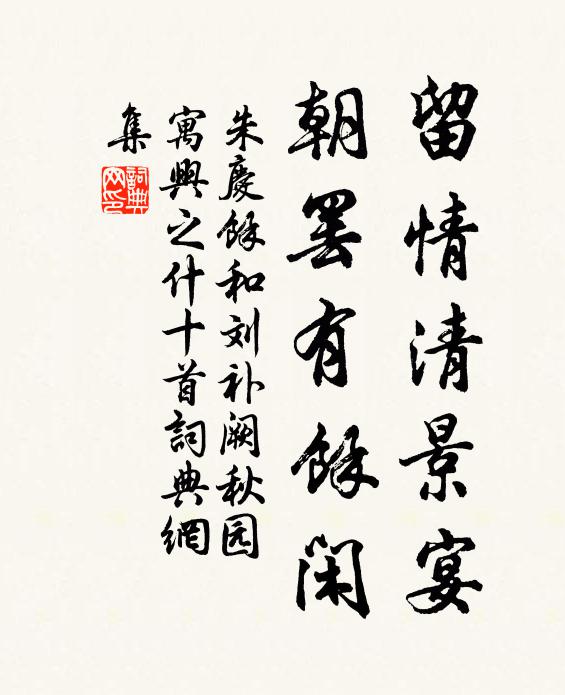 留情清景宴
朝罢有餘闲
朱慶餘和刘补阙秋园
寓興之什十首詞典網
集
詞典网印